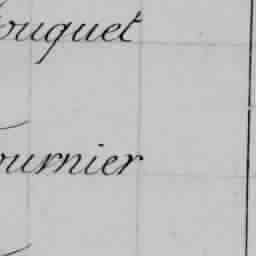 ouquet
ournier